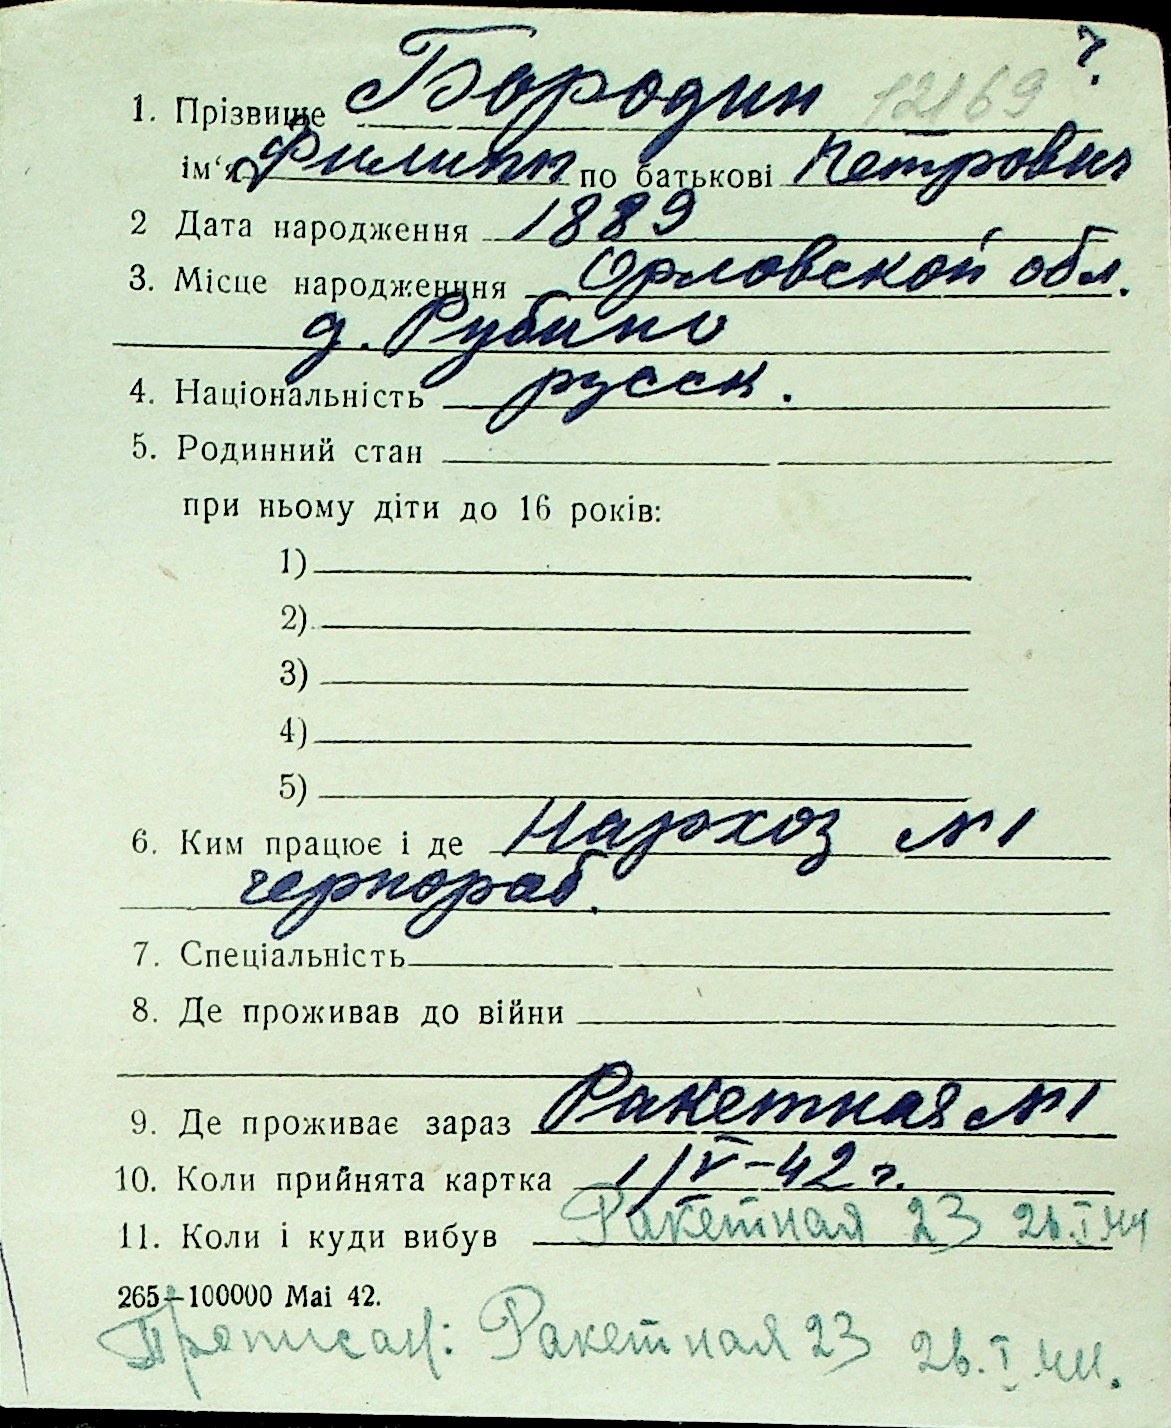 ?
1. Прізвище Бородин 12169
ім'я Филипп по батькові Петрович
2 Дата народження 1889
3. Місце народження Орловской обл.
д. Рубино
4. Національність русск.
5. Родинний стан
при ньому діти до 16 років:
1)
2)
3)
4)
5)
6. Ким працює і де Нархоз №1
чернораб.
7. Спеціальність
8. Де проживав до війни
9. Де проживає зараз Ракетная №1
10. Коли прийнята картка 1/V-42 г.
11. Коли і куди вибув Ракетная 23 26.I.44
265—100000 Mai 42.
Прописан: Ракетная 23 26.I.44.